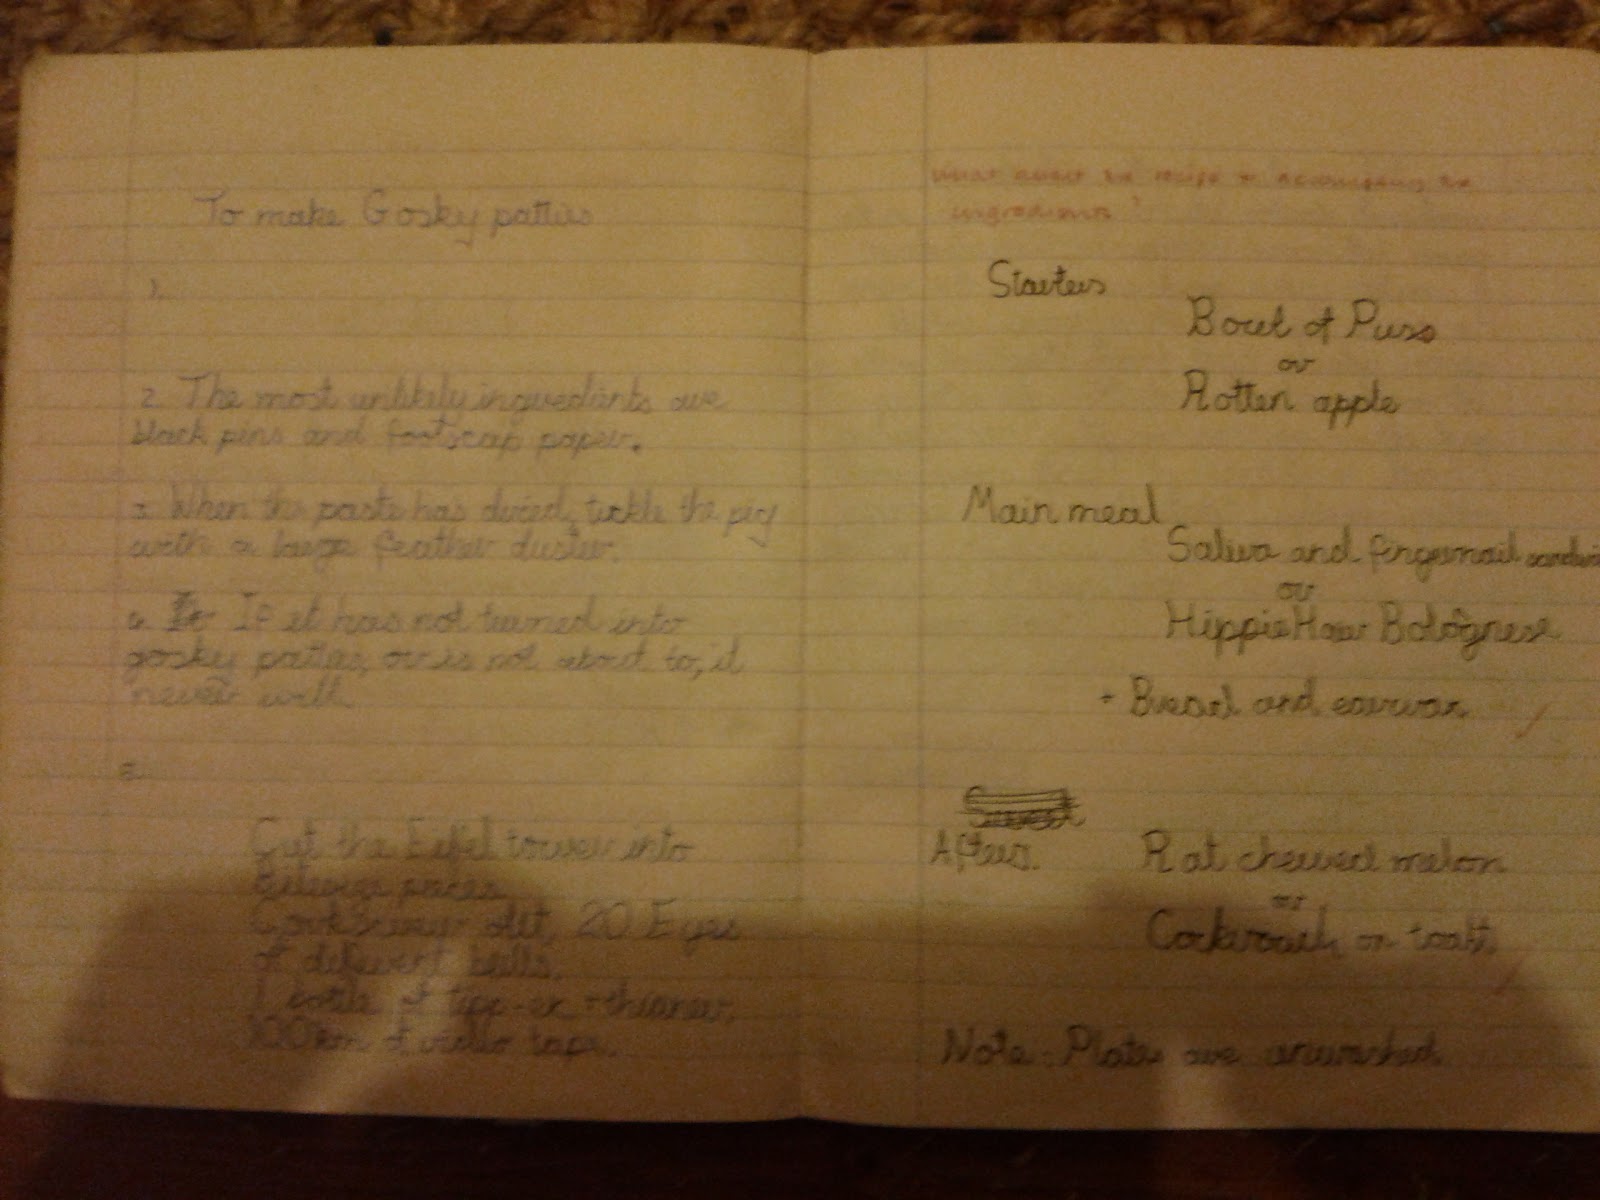 To make Gosky patties
1.
2. The most unlikely ingredients are
black pins and footscap paper.
3. When the paste has dried, tickle the pig
with a large feather duster.
4. If it has not turned into
gosky patties, or is not about to, it
never will.
5.
Cut the Eiffel tower into
pieces
20 Eyes
of different bulls.
1 bottle of tipp-ex + thinner,
100km of video tape.
What about the recipe to accompany the
ingredients?
Starters
Bowl of Puss
or
Rotten apple
Main meal
Saliva and fingernail
or
Hippie Hair Bolognese
+ Bread and earwax
Sweet
Afters.
Rat chewed melon
or
Cockroach on toast
Note: Plates are unwashed